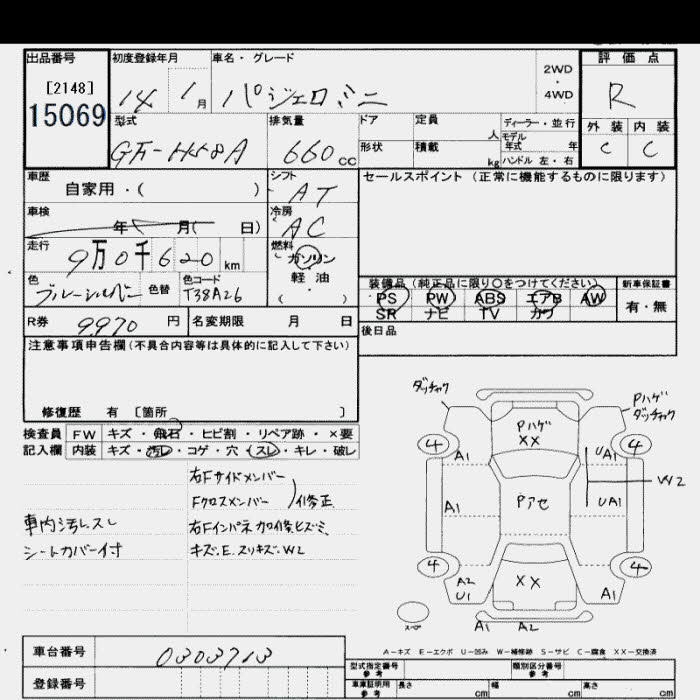 出品番号 初度登録年月 車名・グレード 2WD ・ 4WD 評価点
[2148] 14 1月 パジェロミニ R
15069
型式 排気量 ドア 定員 人 ディーラー・並行 外装 内装
GF-H58A 660cc 形状 積載 kg モデル年式 年 C C
ハンドル 左・右
車歴 シフト セールスポイント (正常に機能するものに限ります)
自家用・( ) AT
車検 冷房
年 月( 日) AC
走行 燃料
9万0千620km ガソリン
軽・油
( )
色 色替 色コード
ブルーシルバー T38A26
装備品 (純正品に限り○をつけてください) 新車保証書
PS PW ABS エアB AW 有・無
SR ナビ TV カワ
R券 9970円 名変期限 月 日
後日品
注意事項申告欄(不具合内容等は具体的に記入して下さい)
修復歴 有 〔箇所 〕
検査員 FW キズ・飛石・ヒビ割・リペア跡・×要
記入欄 内装 キズ・汚レ・コゲ・穴・スレ・キレ・破レ
右Fサイドメンバー
Fクロスメンバー )修正
車内汚レスレ 右Fインパネ加修ヒズミ
シートカバー付 キズ.E.スリキズ.W2
ダッチャク Pハゲ ダッチャク
Pハゲ
XX
4 4
A1 UA1
W2
A1 Pアセ UA1
4 4
A2
U1 XX A1
A1 A2
スペア
A-キズ E-エクボ U-凹み W-補修跡 S-サビ C-腐食 XX-交換済
車台番号 0303713
登録番号
型式指定番号 参考 類別区分番号 参考
車庫証明用 参考 長さ cm 幅 cm 高さ cm